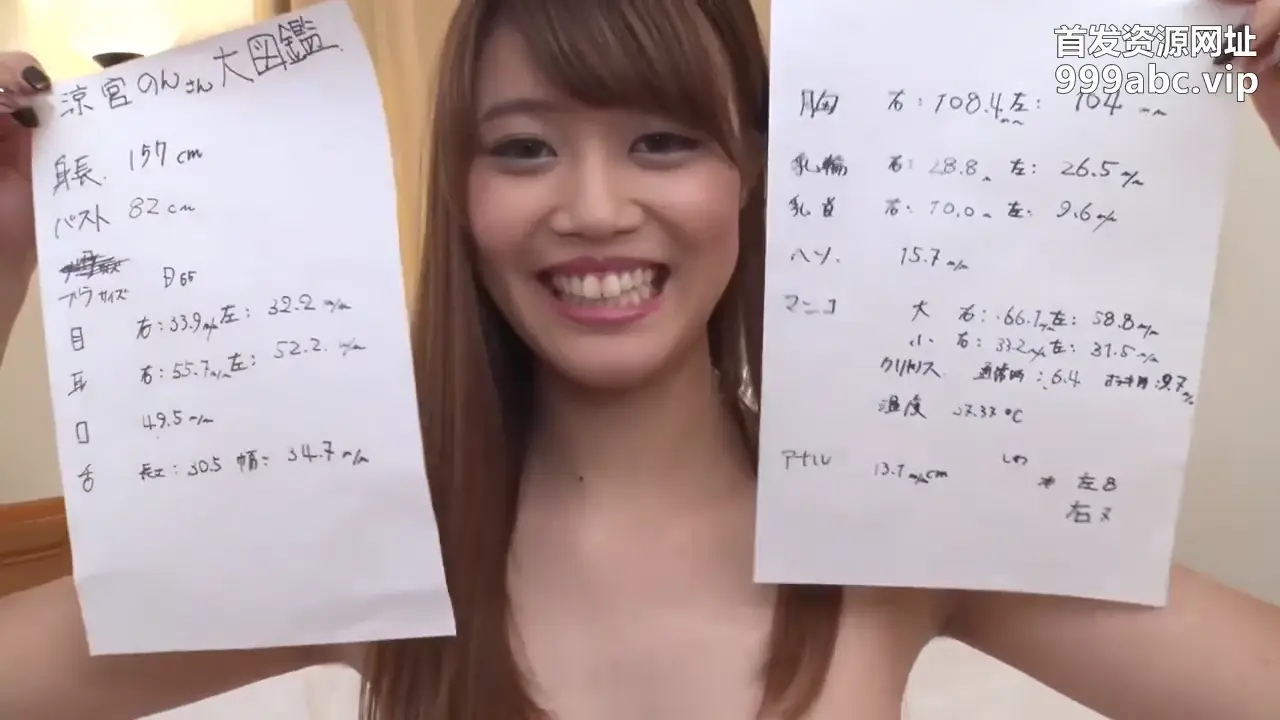 首发资源网址
999abc.vip
涼宮のんさん大図鑑
身長 157cm
バスト 82cm
ブラサイズ D65
目 右:33.9m/m 左:32.2m/m
耳 右:55.7m/m 左:52.2m/m
口 49.5m/m
舌 長さ:30.5 幅:34.7m/m
胸 右:108.4mm 左:104mm
乳輪 右:28.8m 左:26.5m/m
乳首 右:10.0m 左:9.6m/m
ヘソ 15.7m/m
マンコ 大 右:66.1m/m 左:58.8m/m
小 右:33.2m/m 左:31.5m/m
クリトリス 通常時:6.4 9.7m/m
温度 37.37℃
アナル 13.1m/m cm しわ 本 左8
右